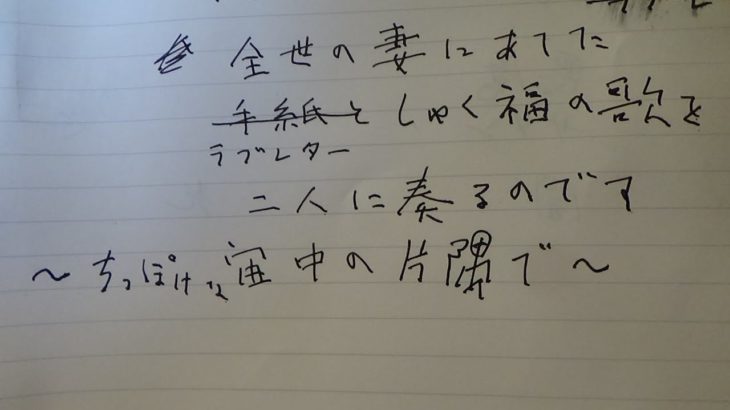 全世の妻にあてた
手紙としゅく福の歌を
ラブレター
二人に奏るのです
～ちっぽけな宙中の片隅で～